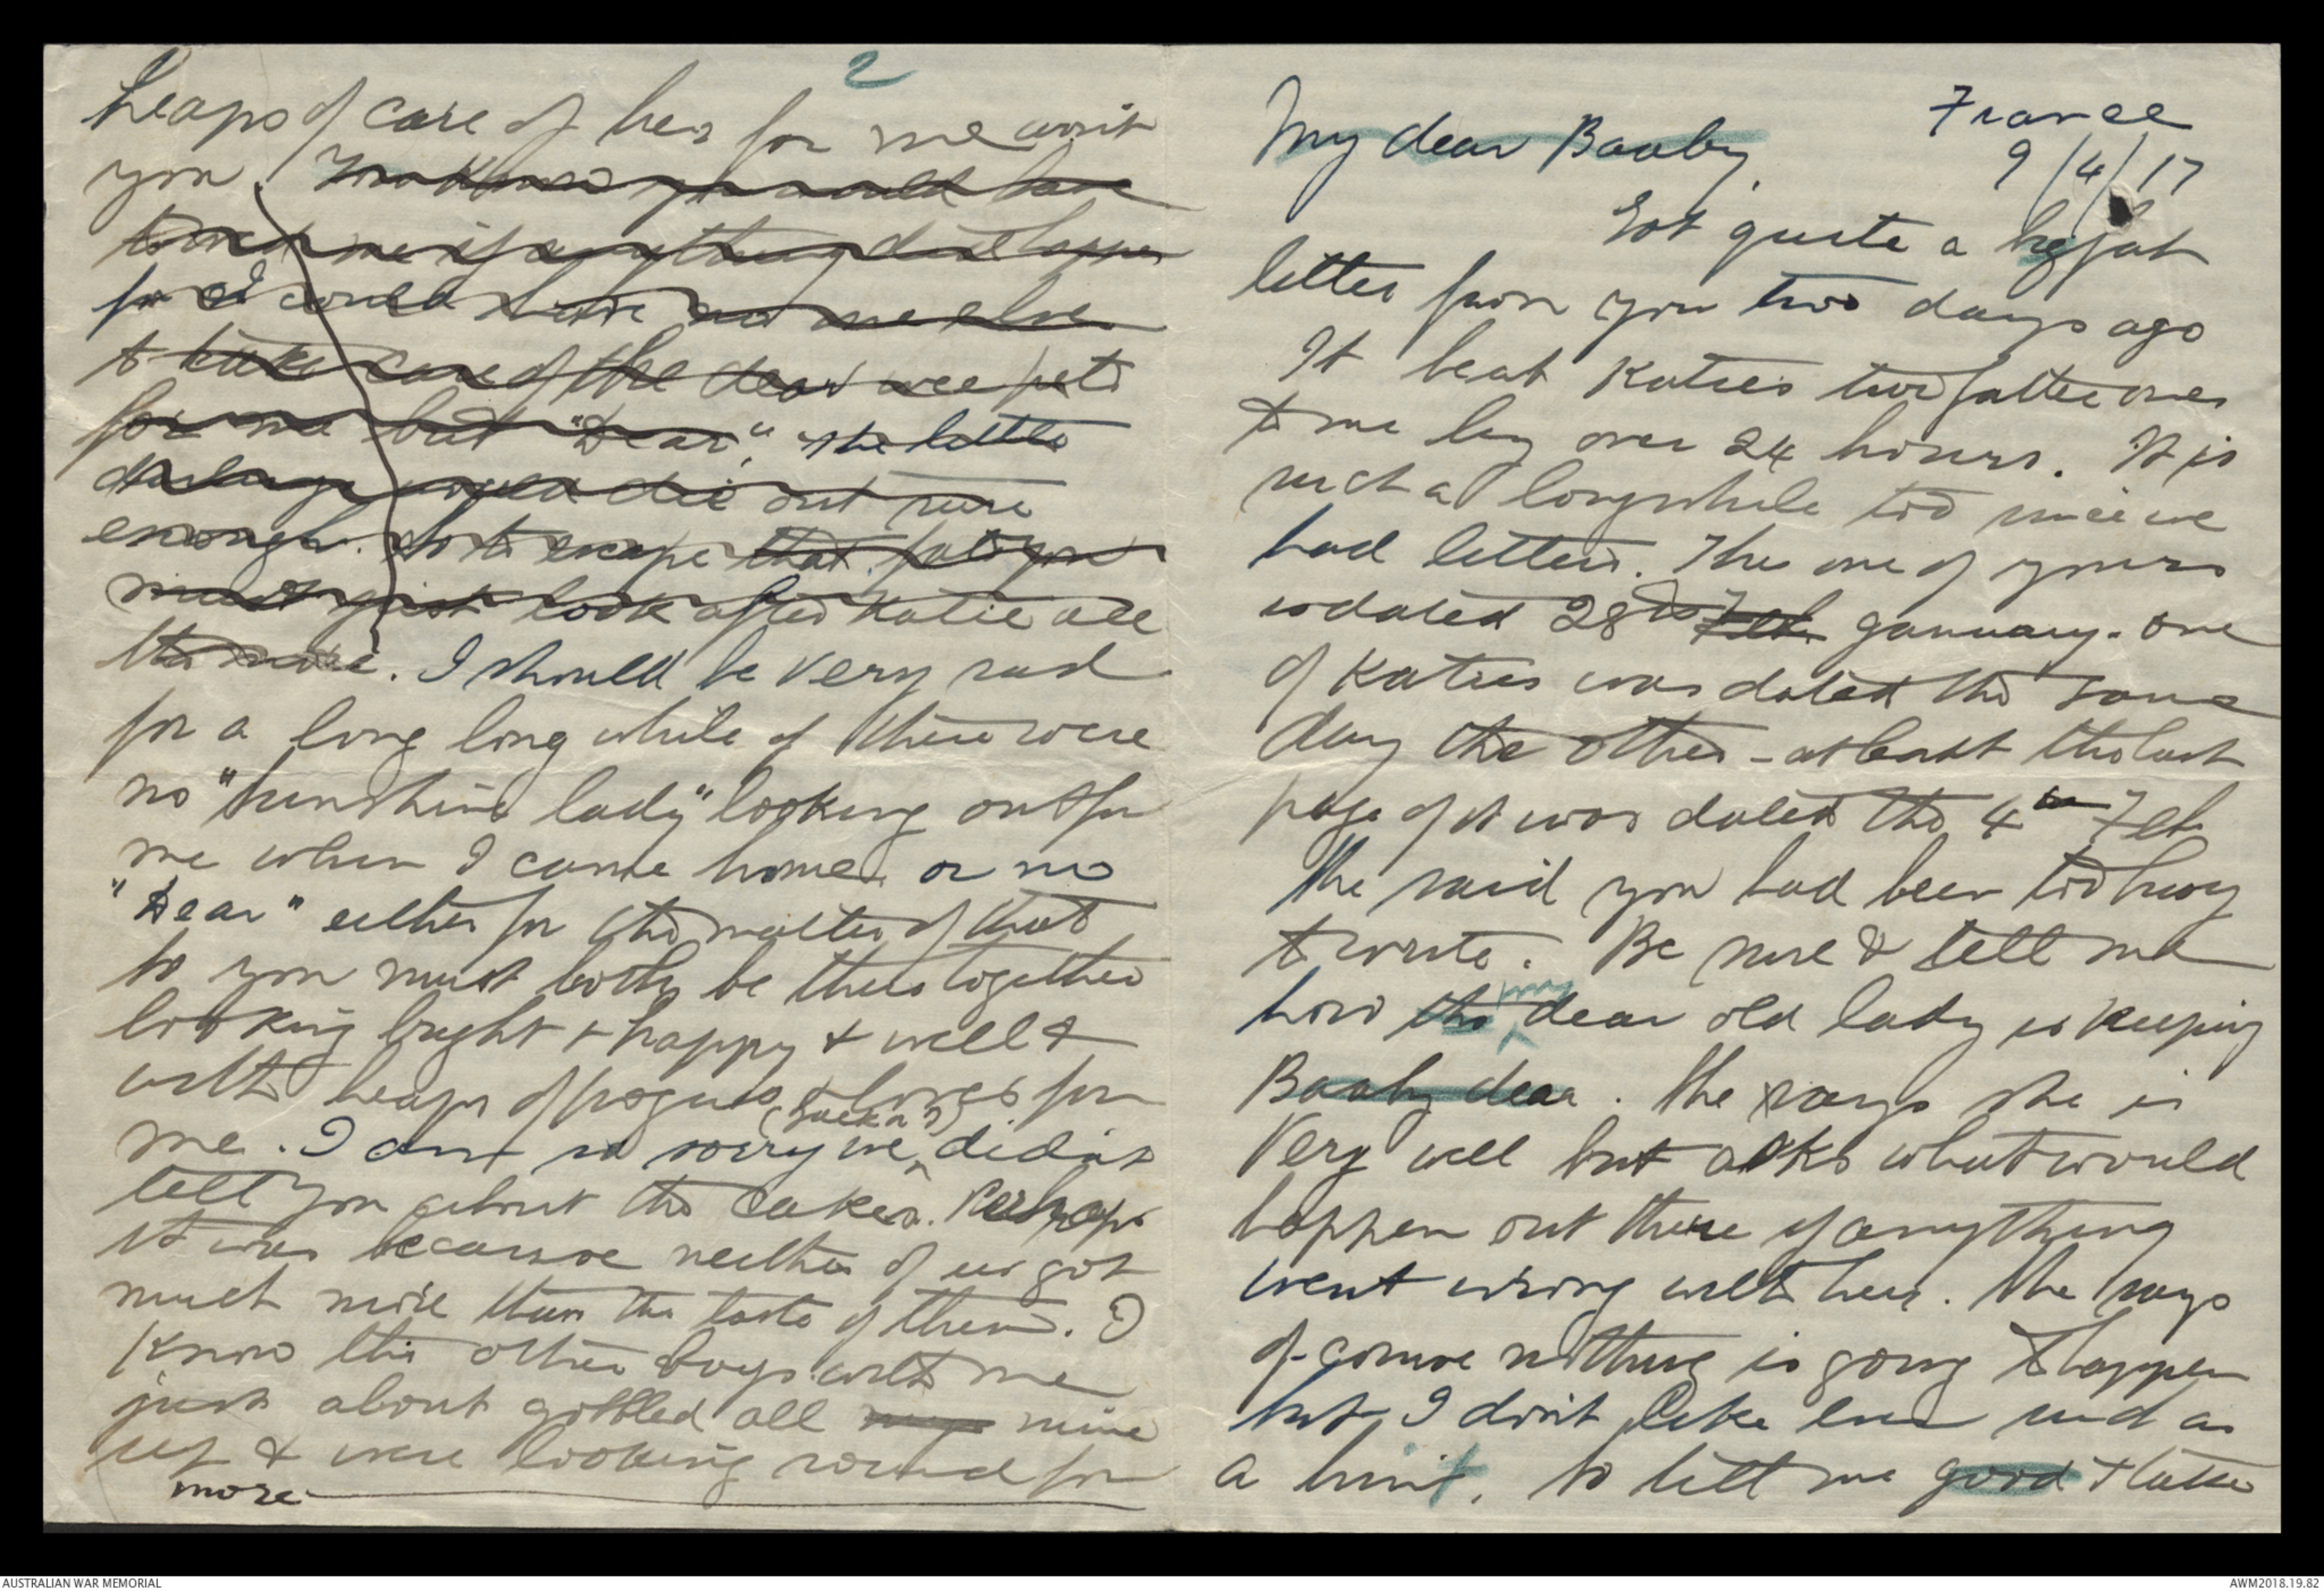 France
9/4/17
My dear Baaby,
Got quite a big fat
letter from you two days ago
It beat Katie's two fatter ones
to me by over 24 hours. It is
such a long while too since we
had letters. The one of yours
is dated 28th Feb January. one
of Katies was dated the same
day the other - at least the last
page of it was dated the 4th Feb
She said you had been too busy
to write. Be sure & tell me
how the my dear old lady is keeping
Baaby dear. She says she is
very well but asks what would
happen out there if anything
went wrong with her. She says
of course nothing is going to happen
but I don't like even such as
a hint. So tell me good & take
2
heaps of care of her for me won't
you. You know you would have
to if anything did happen
for I could have no one else
to take care of the dear wee pets
for me but "Dear". The little
darlings would die out sure
enough. So to escape that fate you
must just look after Katie all
the more. I should be very sad
for a long long while if there were
no "sunshine lady" looking out for
me when I came home or no
"Dear" either for the matter of that
so you must both be there together
looking bright & happy & well &
with heaps of & loves for
me. I am so sorry we didn't
tell you about the cakes. Perhaps
it was because neither of us got
much more than the taste of them. I
know the other boys with me
just about gobbled all my mine
up & were looking round for
more
AUSTRALIAN WAR MEMORIAL
AWM2018.19.82